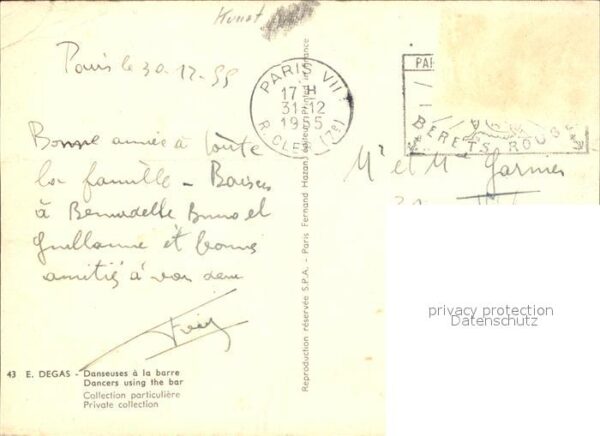 Paris le 30-12-55
Bonne année à toute
la famille - Baisers
à Bernadette Bruno et
Guillaume et bonne
amitié à vous deux
43 E. DEGAS - Danseuses à la barre
Dancers using the bar
Collection particulière
Private collection
Reproduction réservée S.P.A. - Paris Fernand Hazan éditeur
PARIS VII
17 H
31-12
1955
R. CLER (7e)
PAR
BERETS ROUGE
Mr et M Garnier
privacy protection
Datenschutz